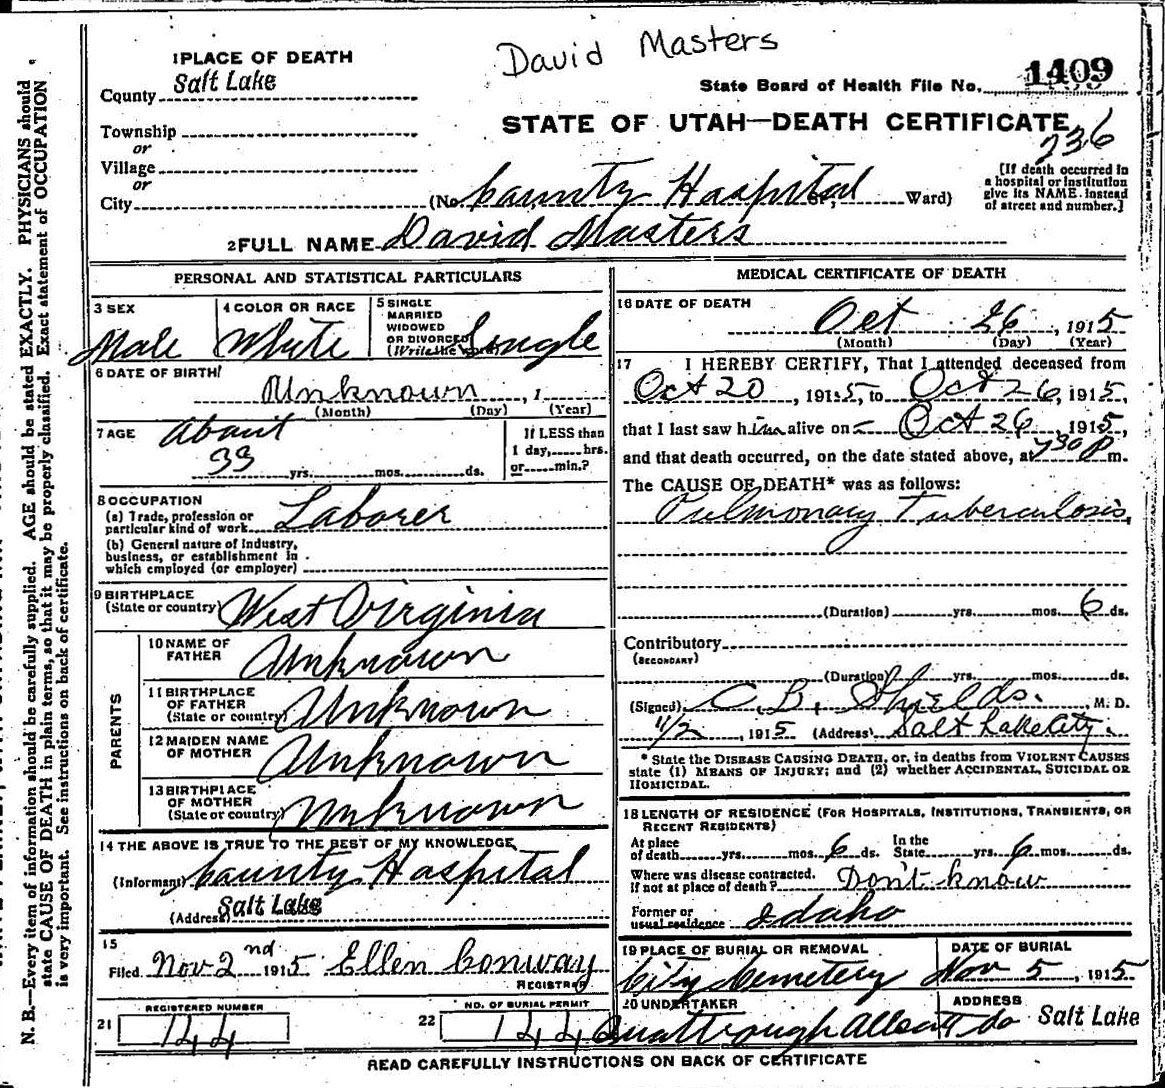 David Masters
1 PLACE OF DEATH
State Board of Health File No. 1409
County Salt Lake
STATE OF UTAH—DEATH CERTIFICATE
236
Township
or
Village
or
City (No. County Hospital St., Ward)
[If death occurred in
a hospital or institution
give its NAME instead
of street and number.]
2 FULL NAME David Masters
PERSONAL AND STATISTICAL PARTICULARS
3 SEX Male
4 COLOR OR RACE White
5 SINGLE
MARRIED
WIDOWED
OR DIVORCED
(Write the word) Single
6 DATE OF BIRTH
Unknown , 1
(Month) (Day) (Year)
7 AGE About
33 yrs. mos. ds.
If LESS than
1 day, hrs.
or min.?
8 OCCUPATION
(a) Trade, profession or
particular kind of work Laborer
(b) General nature of industry,
business, or establishment in
which employed (or employer)
9 BIRTHPLACE
(State or country) West Virginia
PARENTS
10 NAME OF
FATHER Unknown
11 BIRTHPLACE
OF FATHER
(State or country) Unknown
12 MAIDEN NAME
OF MOTHER Unknown
13 BIRTHPLACE
OF MOTHER
(State or country) Unknown
14 THE ABOVE IS TRUE TO THE BEST OF MY KNOWLEDGE
(Informant) County Hospital
(Address) Salt Lake
15
Filed Nov 2nd 1915 Ellen Conway
REGISTRAR
REGISTERED NUMBER
21 144
NO. OF BURIAL PERMIT
22 144
MEDICAL CERTIFICATE OF DEATH
16 DATE OF DEATH
Oct 26 , 1915
(Month) (Day) (Year)
17 I HEREBY CERTIFY, That I attended deceased from
Oct 20 , 1915, to Oct 26, 1915,
that I last saw him alive on Oct 26 , 1915,
and that death occurred, on the date stated above, at 7 30 P m.
The CAUSE OF DEATH* was as follows:
Pulmonary Tuberculosis,
(Duration) yrs. mos. 6 ds.
Contributory
(SECONDARY)
(Duration) yrs. mos. ds.
(Signed) C. B. Shields. M. D.
11/2 , 1915 (Address) Salt Lake City.
* State the DISEASE CAUSING DEATH, or, in deaths from VIOLENT CAUSES
state (1) MEANS OF INJURY; and (2) whether ACCIDENTAL, SUICIDAL OR
HOMICIDAL.
18 LENGTH OF RESIDENCE (FOR HOSPITALS, INSTITUTIONS, TRANSIENTS, OR
RECENT RESIDENTS)
At place
of death yrs. mos. 6 ds.
In the
State yrs. 6 mos. ds.
Where was disease contracted,
if not at place of death? Don't know
Former or
usual residence Idaho
19 PLACE OF BURIAL OR REMOVAL
City Cemetery
DATE OF BURIAL
Nov 5 , 1915
20 UNDERTAKER
Co
ADDRESS
Salt Lake
READ CAREFULLY INSTRUCTIONS ON BACK OF CERTIFICATE
N. B.—Every item of information should be carefully supplied. AGE should be stated EXACTLY. PHYSICIANS should
state CAUSE OF DEATH in plain terms, so that it may be properly classified. Exact statement of OCCUPATION
is very important. See instructions on back of certificate.